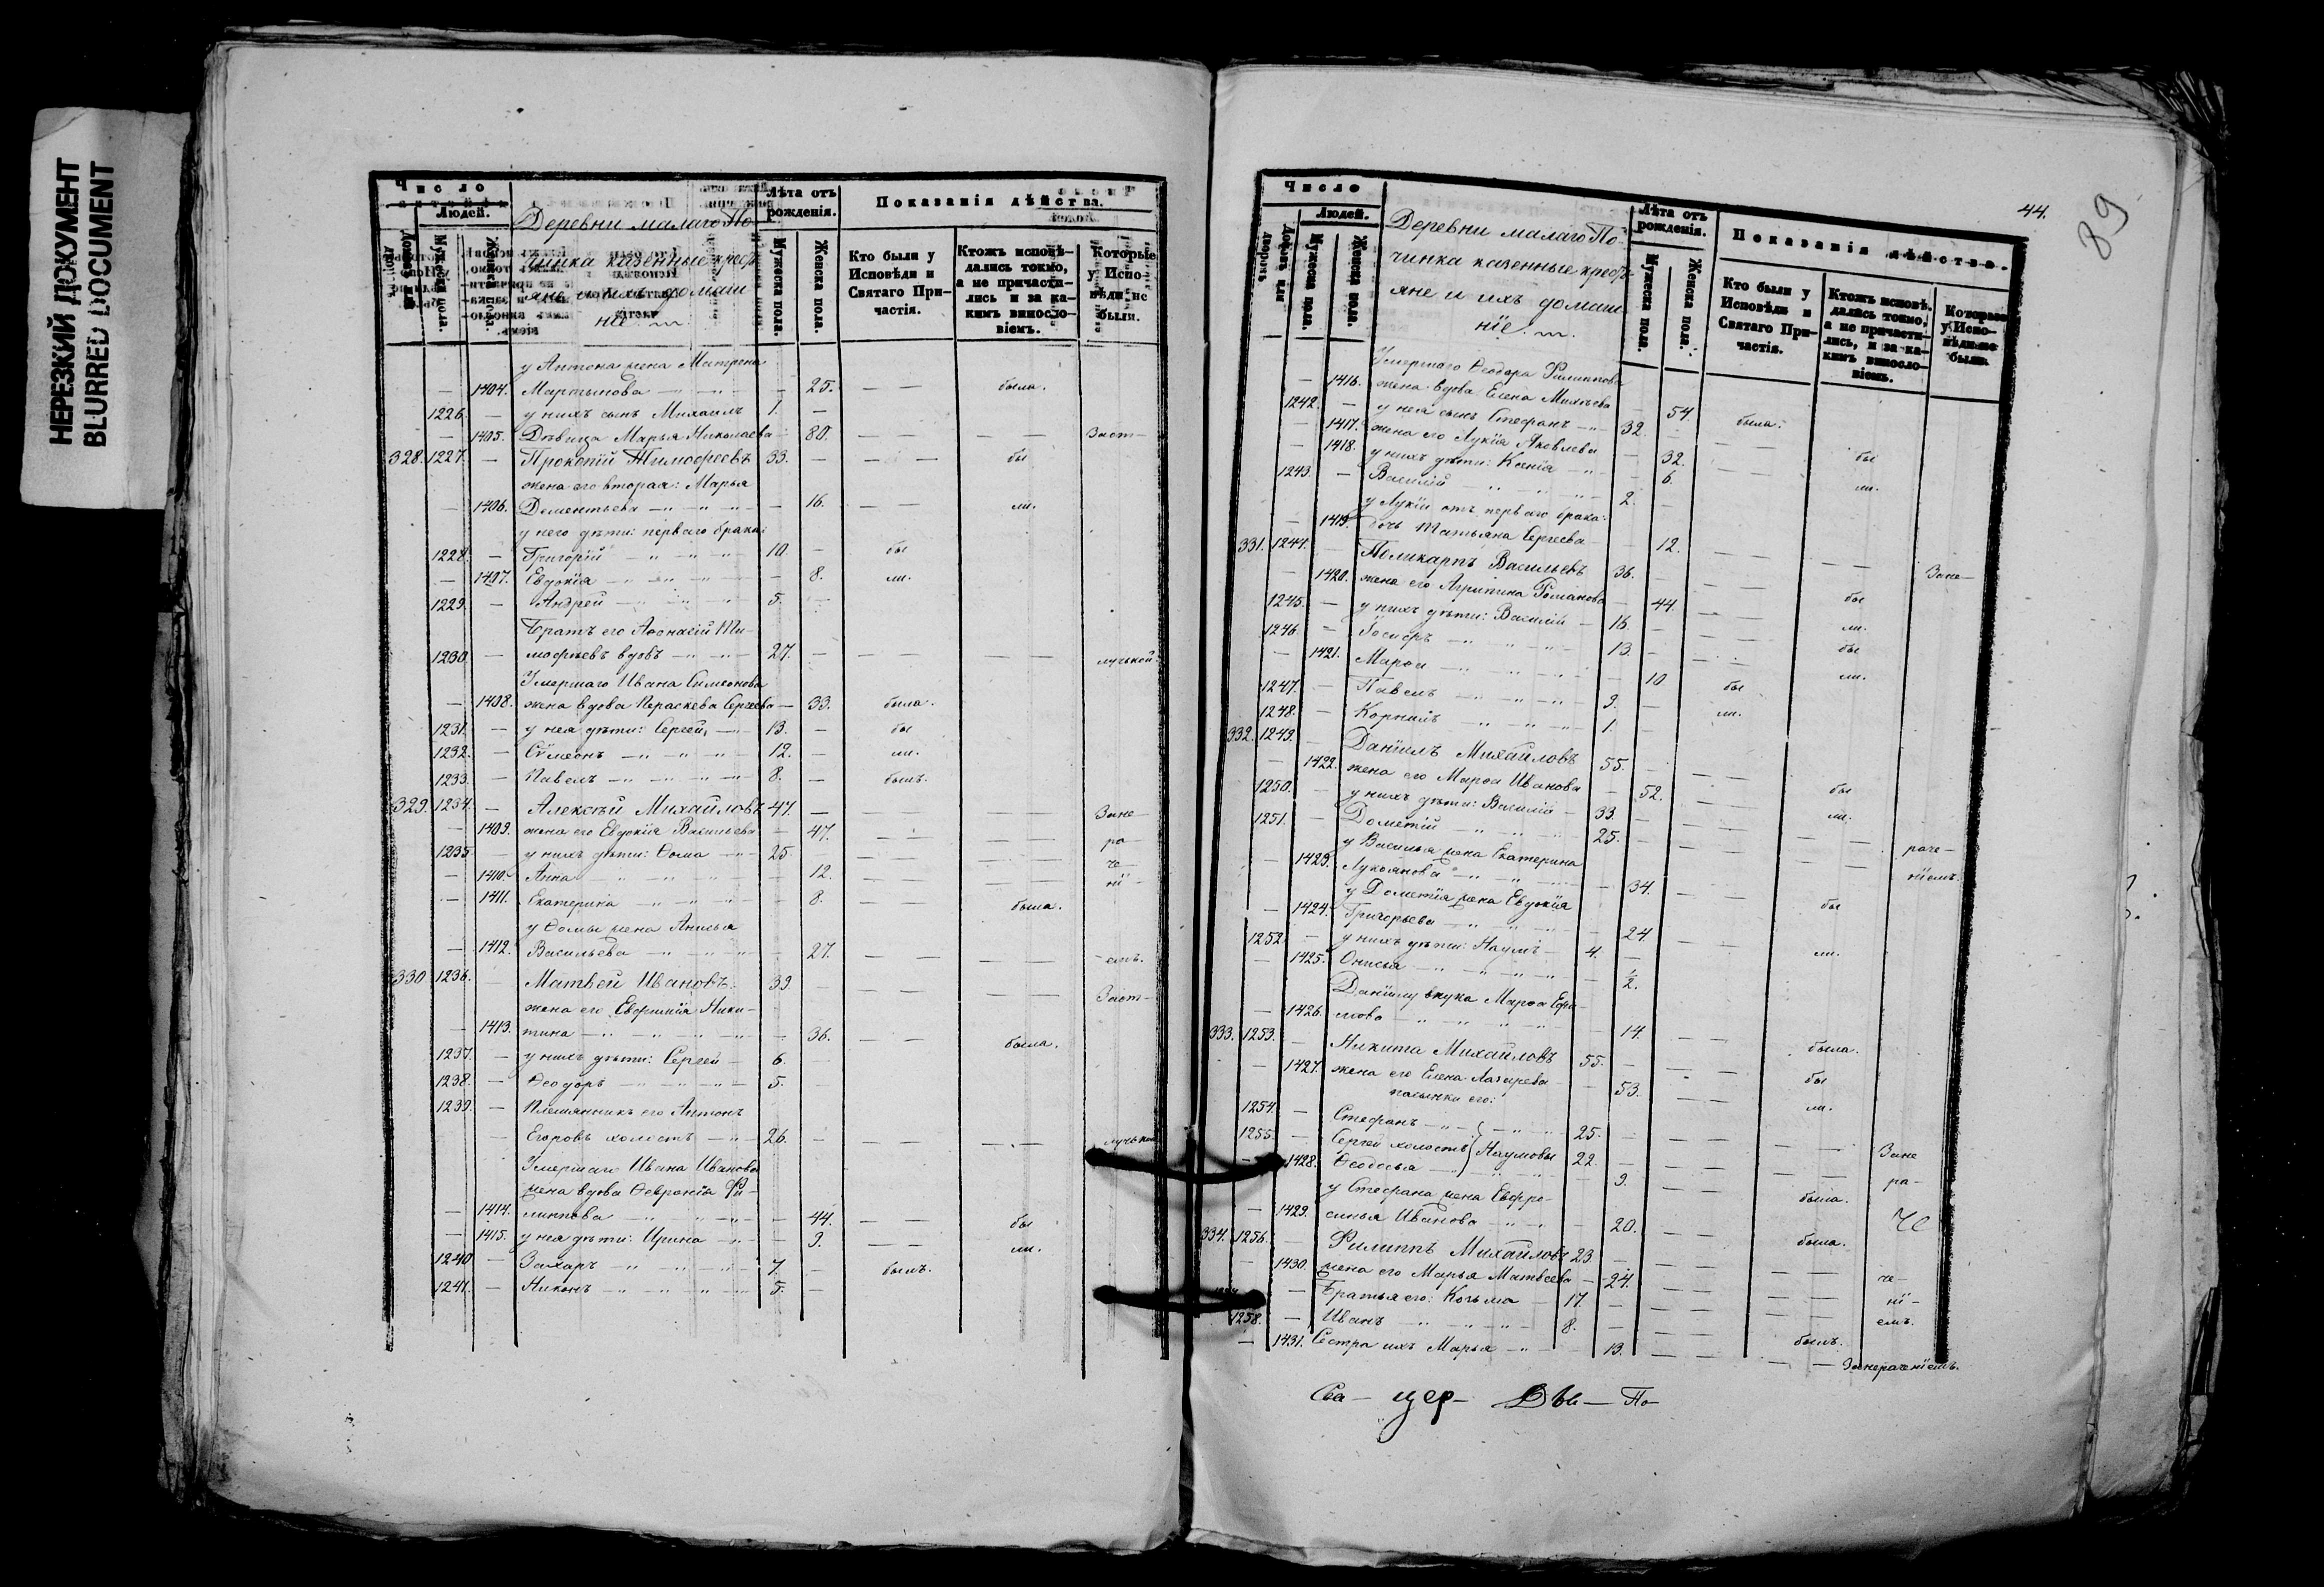 НЕРЕЗКИЙ ДОКУМЕНТ
BLURRED DOCUMENT
Число
Людей.
Мужеска пола.
Женска пола.
Деревни малаго По-
чинка казенные кресть-
яне и ихъ домаш-
нїе.
Лѣта отъ рожденія.
Мужеска пола.
Женска пола.
Показанія дѣйства.
Кто были у Исповѣди и Святаго Причастія.
Ктожъ исповѣдались токмо, а не причастились и за какимъ винословіемъ.
Которые у Исповѣди не были.
у Антона жена Матрена
— 1404. Мартынова — 25. — — была.
1226. — у нихъ сынъ Михаилъ 1. —
— 1405. Дѣвица Марья Николаева — 80. — — — — Заст—
328. 1227. — Прокопій Тимофеевъ 33. — — — бы
жена его вторая: Марья
— 1406. Дементьева — 16. — — ли.
у него дѣти: перваго брака:
1228. — Григорій 10. — бы
— 1407. Евдокїа — 8. ли.
1229. — Андрей 5. —
Братъ его Аѳонасій Ти-
1230. — мофѣевъ вдовъ 27. — — — — —
Умершаго Ивана Симеонова
— 1408. жена вдова Параскева Сергеева — 33. была.
1231. — у нея дѣти: Сергей, 13. — бы
1232. — Сѵмеонъ 12. — ли.
1233. — Павелъ 8. — былъ.
329. 1234. — Алексѣй Михайловъ 47. — — — Зане
— 1409. жена его Евдокїа Васильева — 47. — — ра—
1235. — у нихъ дѣти: Ѳома 25 — — — че—
— 1410. Анна — 12. — — — нї—
— 1411. Екатерина — 8. — — была.
у Ѳомы жена Анисья
— 1412. Васильева — 27. — — — — емъ.
330 1236. — Матвей Ивановъ. 39 — — — — — Заст—
жена его Евфимїа Ники-
— 1413. тина — 36. — — была.
1237. — у нихъ дѣти: Сергей 6.
1238. — Ѳеодоръ 5.
1239. — Племянникъ его Антонъ
Егоровъ холостъ 26. — — — — —
Умершаго Ивана Иванова
жена вдова Ѳевронїа Фи-
— 1414. липпова — 44. — — бы
— 1415. у нея дѣти: Ирина — 9. — — ли.
1240 — Захаръ 7. — былъ.
1241. — Никонъ 5. —
44.
89
Число
Людей.
Домовъ или дворовъ
Мужеска пола.
Женска пола.
Деревни малаго По-
чинка казенные кресть-
яне и ихъ домаш-
нїе.
Лѣта отъ рожденія.
Мужеска пола.
Женска пола.
Показанія дѣйства.
Кто были у Исповѣди и Святаго Причастія.
Ктожъ исповѣдались токмо, а не причастились, и за какимъ винословіемъ.
Которые у Исповѣди не были.
Умершаго Ѳеодора Филиппова
— 1416. жена вдова Елена Михѣева — 54. была.
1242. — у нея сынъ Стефанъ 32. — — — бы
— 1417. жена его Лукїа Яковлева — 32. — — ли.
— 1418. у нихъ дѣти: Ксенїа — 6.
1243. — Василїй 2. —
у Лукїи отъ перваго брака:
— 1419. дочь Татьяна Сергеева — 12.
331. 1244. Поликарпъ Васильевъ 36. — — — — Зане—
— 1420. жена его Агрипина Романова — 44. — — бы
1245. — у нихъ дѣти: Василїй 16. — — — ли.
1246. — Іосифъ 13. — — — бы
— 1421. Марѳа — 10 — — ли.
1247. — Павелъ 3. — бы
1248. — Корнилъ 1. — ли.
332. 1249. — Данїилъ Михайловъ 55. — — — бы
— 1422. жена его Марѳа Иванова — 52. — — ли.
1250. — у нихъ дѣти: Василїй 33. — — — — — раче—
1251. — Дометїй 25. — — — — — нїемъ.
у Василья жена Екатерина
— 1423. Лукоянова — 34. — — бы
у Дометїа жена Евдокїа
— 1424. Григорьева — 24. — — ли.
1252. — у нихъ дѣти: Наумъ 4. —
— 1425. Онисья — ½.
Данїилу внука Марѳа Ефи-
— 1426. мова — 14. — — была.
333. 1253. — Никита Михайловъ 55. — — — бы
— 1427. жена его Елена Лазарева — 53. — — ли.
пасынки его:
1254. — Стефанъ 25. — — — — — Зане
1255. — Сергей холостъ } Наумовы 22. — — — — — ра—
— 1428. Ѳеодосья — 9. — — была.
у Стефана жена Евфро-
— 1429. синья Иванова — 20. — — была.
че
334. 1256. — Филиппъ Михайловъ 23. — — — — — че—
— 1430. жена его Марья Матвеева — 24. — — — — нї—
— Братья его: Козьма 17. — — — — — емъ.
1258. — Иванъ 8. — — — былъ.
— 1431. Сестра ихъ Марья — 13. — — — — Занераченїемъ.
Сва— цер— Дїи— По—